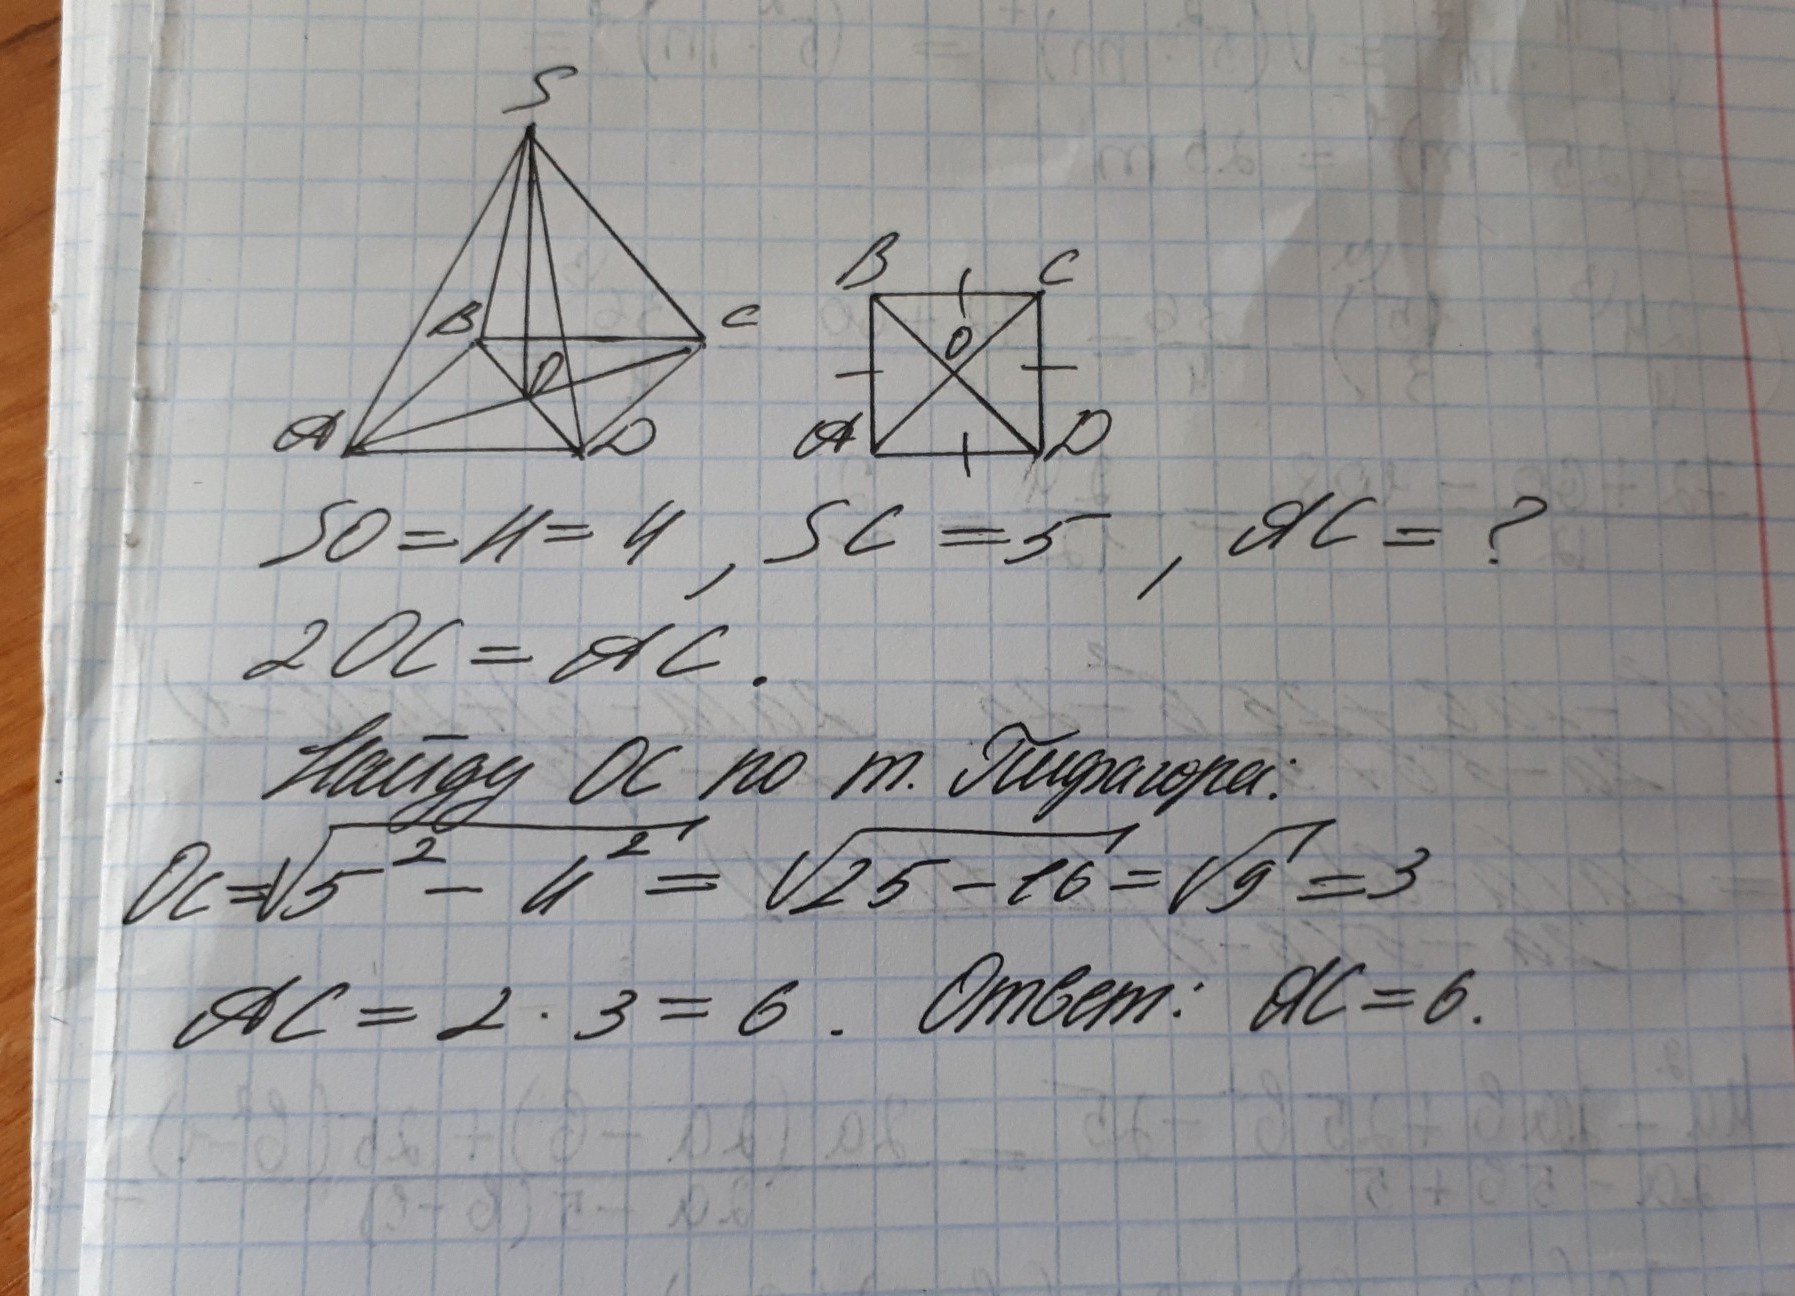 S
B C
B C
O
O
A D
A D
SO = H = 4, SC = 5, AC = ?
2OC = AC.
Найду OC по т. Пифагора:
OC = √5² - 4² = √25 - 16 = √9 = 3
AC = 2 · 3 = 6. Ответ: AC = 6.